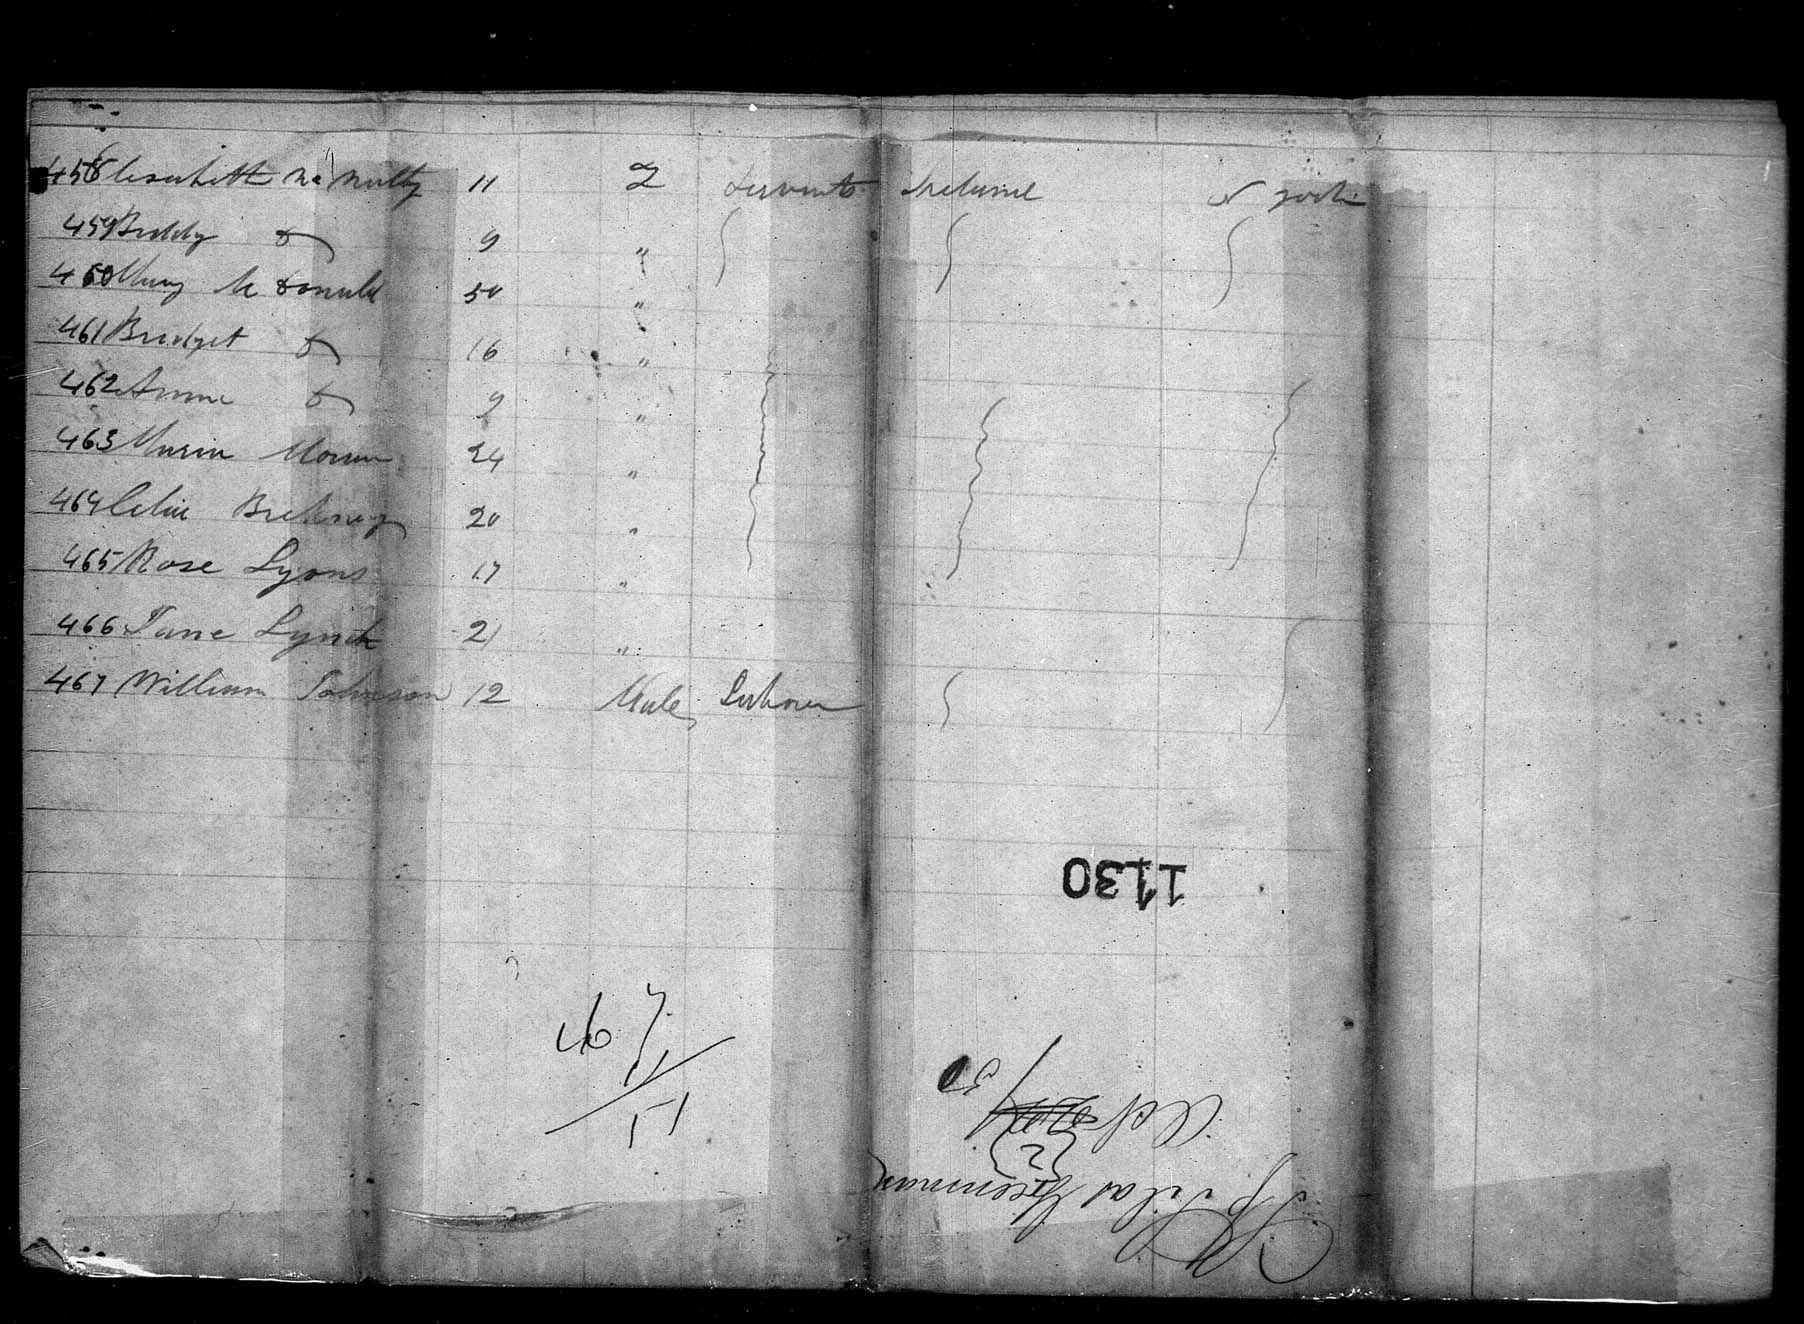 458 Elesabeth McNulty 11 F Servants Ireland N York
459 Biddy Do 9 "
460 Mary McDonald 50 "
461 Bridget Do 16 "
462 Anne Do 9 "
463 Maria Moran 24 "
464 Celia 20 "
465 Rose Lyons 17 "
466 Jane Lynch 21 "
467 William Johnson 12 Male Labourer
1130
467
11
Sp Silas Greenman
2
Oct
50